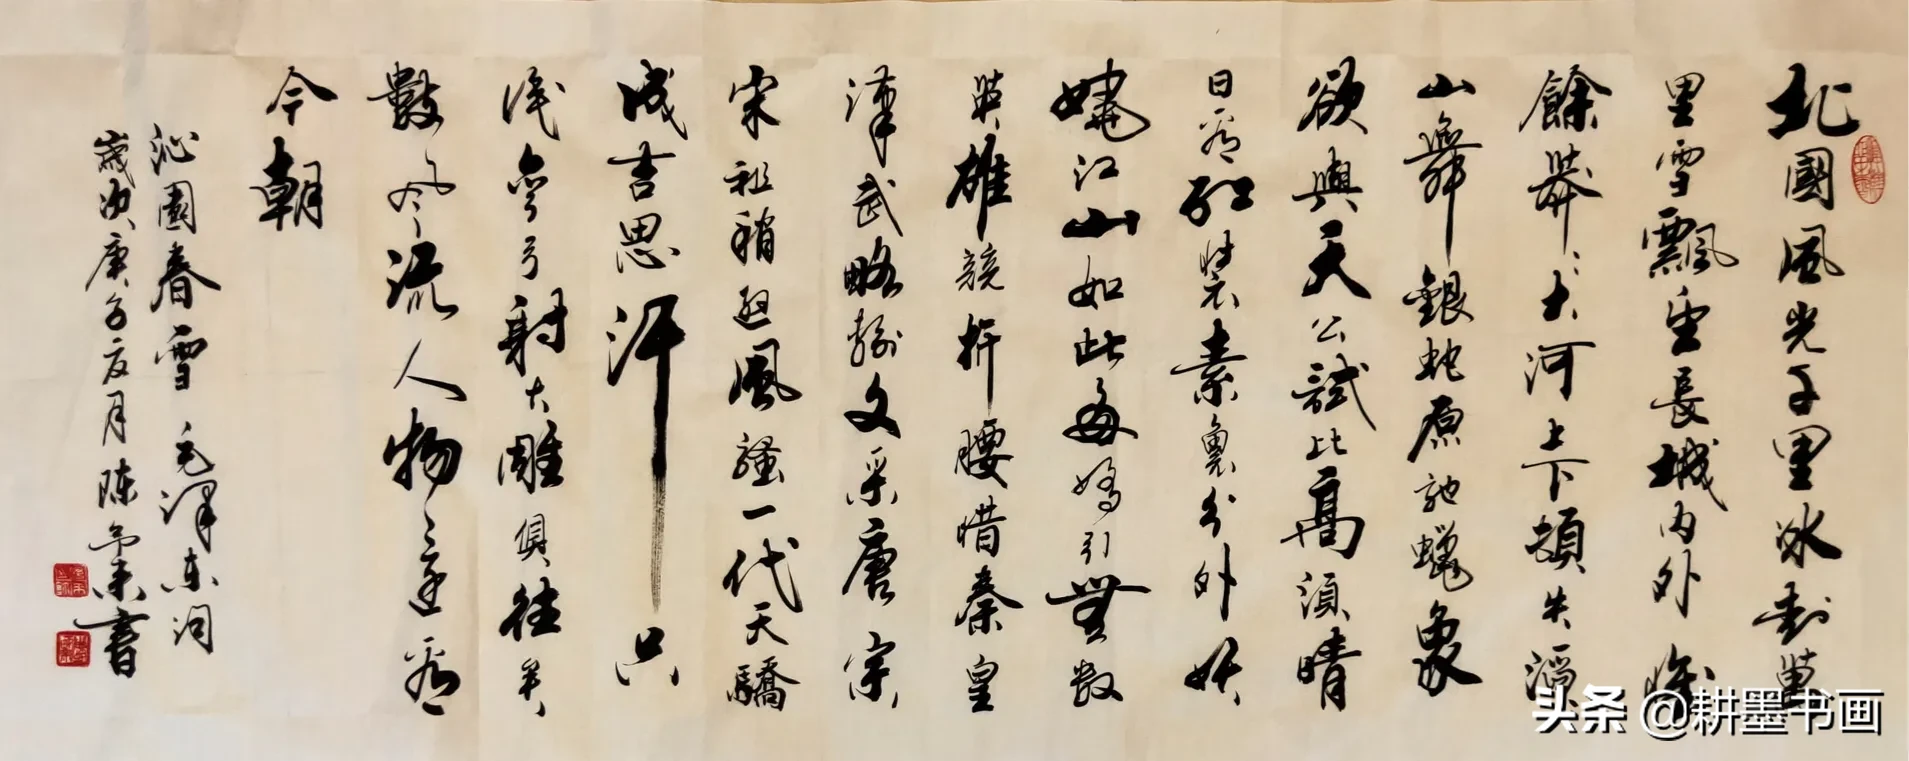 北國風光千里冰封萬
里雪飄望長城內外惟
餘莽々大河上下頓失滔々
山舞銀蛇原馳蠟象
欲與天公試比高須晴
日看紅裝素裹分外妖
嬈江山如此多嬌引無数
英雄競折腰惜秦皇
漢武略輸文采唐宗
宋祖稍遜風騷一代天驕
成吉思汗只
識彎弓射大雕俱往矣
數風流人物還看
今朝
沁園春雪 毛澤东詞
歲次庚子夏月陈書
头条 @耕墨书画